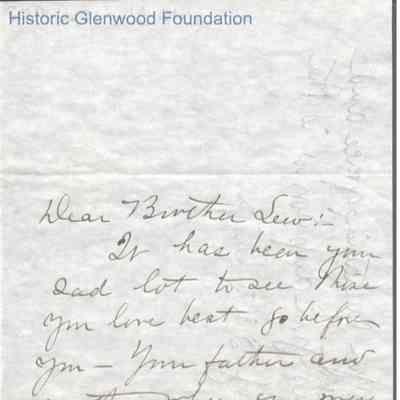 Historic Glenwood Foundation
Dear Brother Lew:-
It has been your
sad lot to see those
you love best go before
you - Your father and